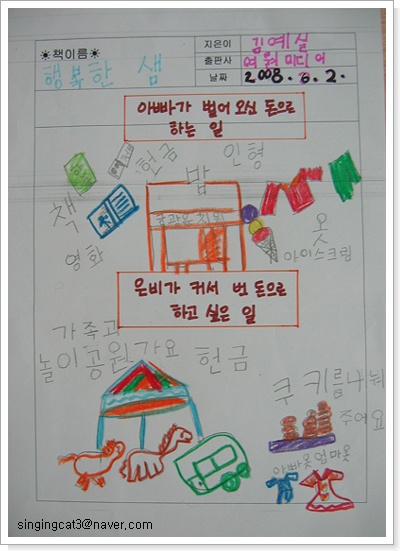 ☀책이름☀
행복한 샘
지은이 김예실
출판사 여원미디어
날짜 2008. 6. 2.
아빠가 벌어 오신 돈으로
하는 일
헌금
인형
책
밥
영화
옷
아이스크림
은비가 커서 번 돈으로
하고 싶은 일
가족과
놀이공원가요
헌금
쿠키를나눠
주어요
아빠옷 엄마옷
singingcat3@naver.com